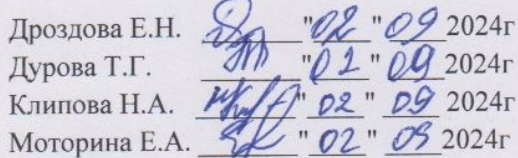 Дроздова Е.Н. "02" 09 2024г
Дурова Т.Г. "02" 09 2024г
Клипова Н.А. "02" 09 2024г
Моторина Е.А. "02" 09 2024г